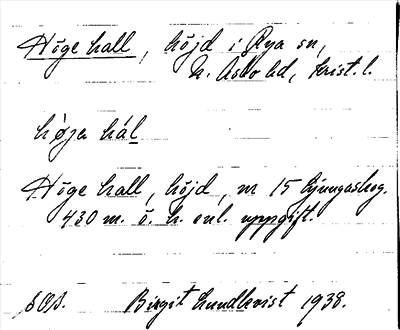 Höge hall, höjd i Rya sn,
N. Åsbo hd, Krist. l.
høja hál
Höge hall, höjd, m 15 Ljungaskog.
430 m. ö. h. enl. uppgift.
Birgit Lundkvist 1938.